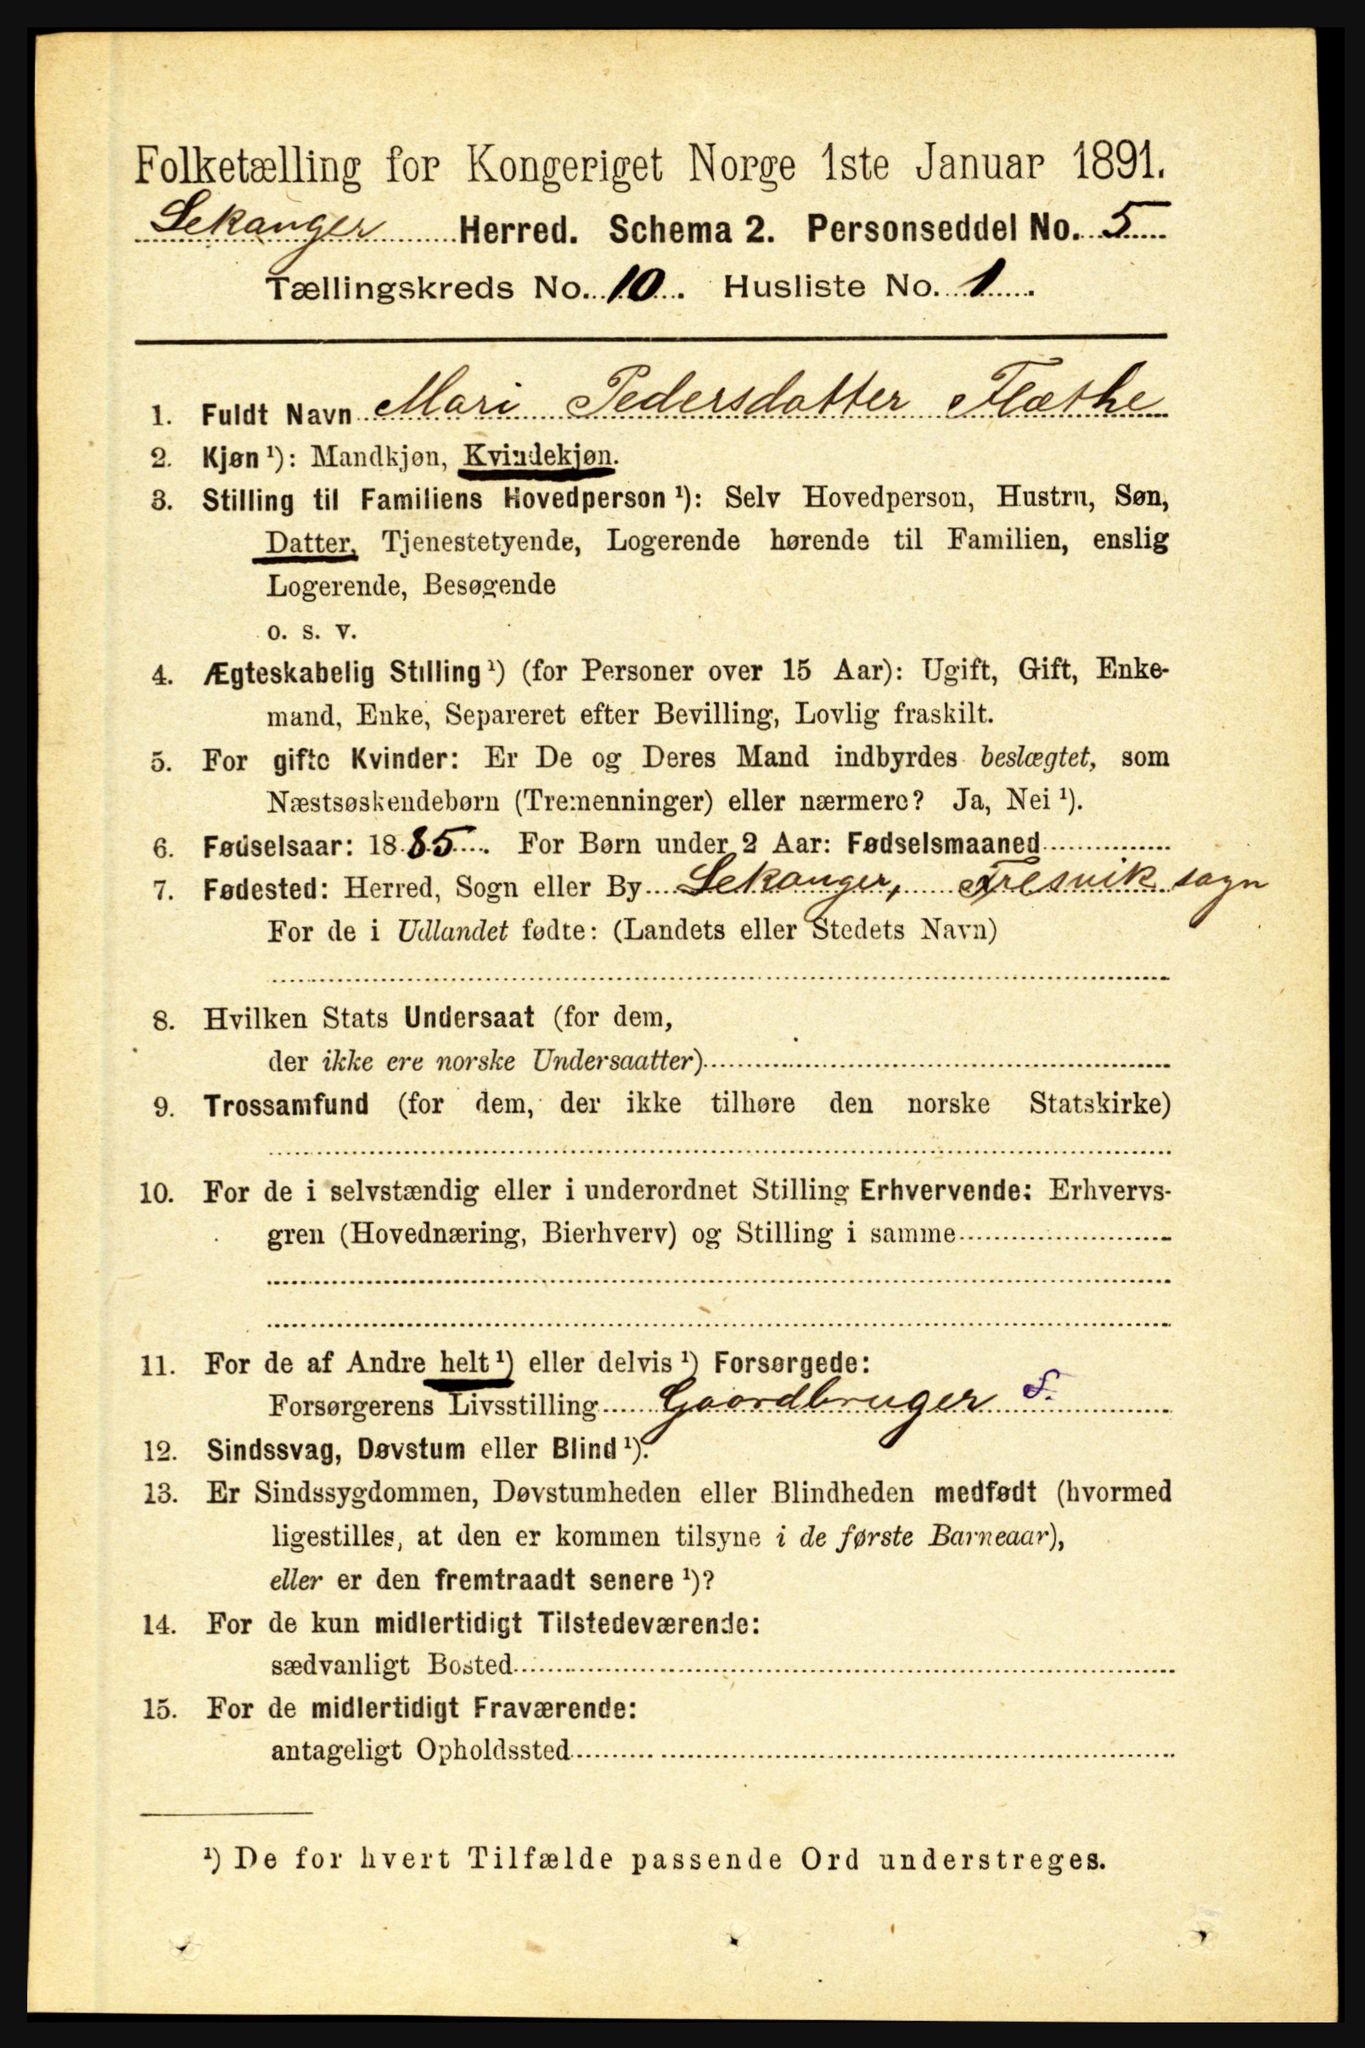 Folketælling for Kongeriget Norge 1ste Januar 1891.
Lekanger Herred. Schema 2. Personseddel No. 5
Tællingskreds No. 10. Husliste No. 1
1. Fuldt Navn Mari Pedersdatter Flæthe
2. Kjøn ¹): Mandkjøn, Kvindekjøn.
3. Stilling til Familiens Hovedperson ¹): Selv Hovedperson, Hustru, Søn,
Datter, Tjenestetyende, Logerende hørende til Familien, enslig
Logerende, Besøgende
o. s. v.
4. Ægteskabelig Stilling ¹) (for Personer over 15 Aar): Ugift, Gift, Enke-
mand, Enke, Separeret efter Bevilling, Lovlig fraskilt.
5. For gifte Kvinder: Er De og Deres Mand indbyrdes beslægtet, som
Næstsøskendebørn (Tremenninger) eller nærmere? Ja, Nei ¹).
6. Fødselsaar: 1885. For Børn under 2 Aar: Fødselsmaaned
7. Fødested: Herred, Sogn eller By Lekanger, Fresvik sogn
For de i Udlandet fødte: (Landets eller Stedets Navn)
8. Hvilken Stats Undersaat (for dem,
der ikke ere norske Undersaatter)
9. Trossamfund (for dem, der ikke tilhøre den norske Statskirke)
10. For de i selvstændig eller i underordnet Stilling Erhvervende: Erhvervs-
gren (Hovednæring, Bierhverv) og Stilling i samme
11. For de af Andre helt ¹) eller delvis ¹) Forsørgede:
Forsørgerens Livsstilling Gaardbruger S.
12. Sindssvag, Døvstum eller Blind ¹).
13. Er Sindssygdommen, Døvstumheden eller Blindheden medfødt (hvormed
ligestilles, at den er kommen tilsyne i de første Barneaar),
eller er den fremtraadt senere ¹)?
14. For de kun midlertidigt Tilstedeværende:
sædvanligt Bosted
15. For de midlertidigt Fraværende:
antageligt Opholdssted
¹) De for hvert Tilfælde passende Ord understreges.